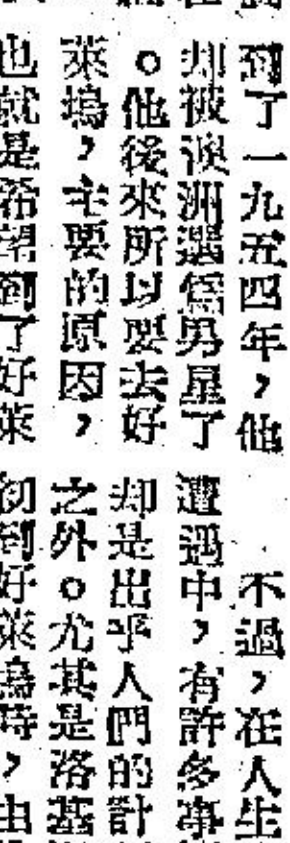 到了一九五四年，他
却被澳洲選爲男星了
。他後來所以要去好
萊塢，主要的原因，
也就是希望到了好萊
不過，在人生
遭遇中，有許多事
却是出乎人們的計
之外。尤其是洛基
初到好萊塢時，由